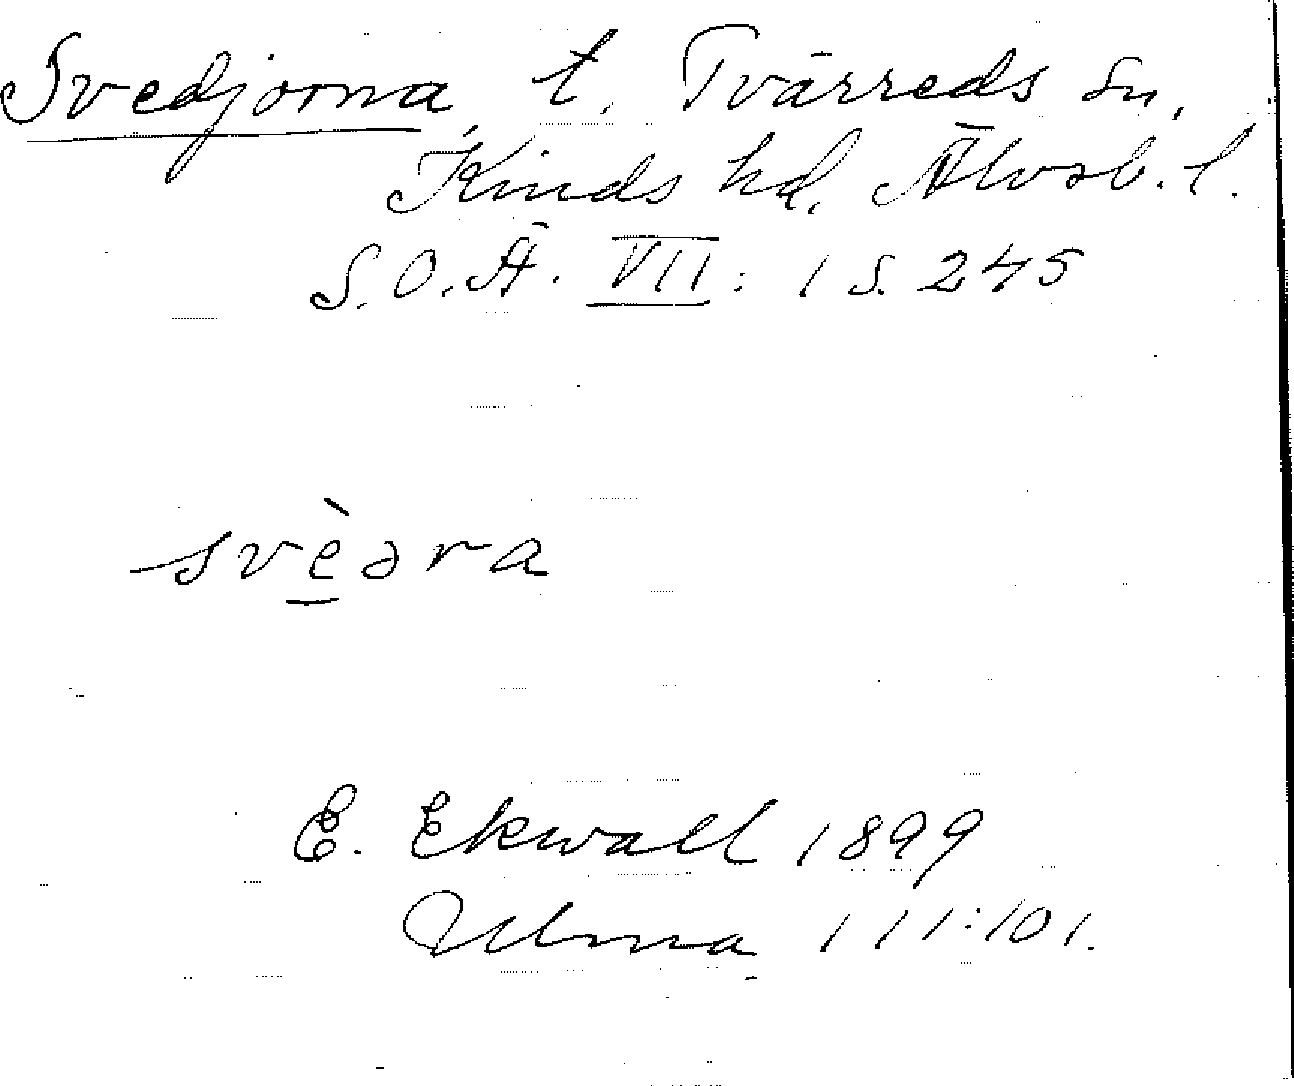 Svedjorna t. Tvärreds sn,
Kinds hd, Älvsb. l.
S.O.Ä. VII: 1 s. 245
svèəra
E. Ekwall 1899
Ulma 111:101.